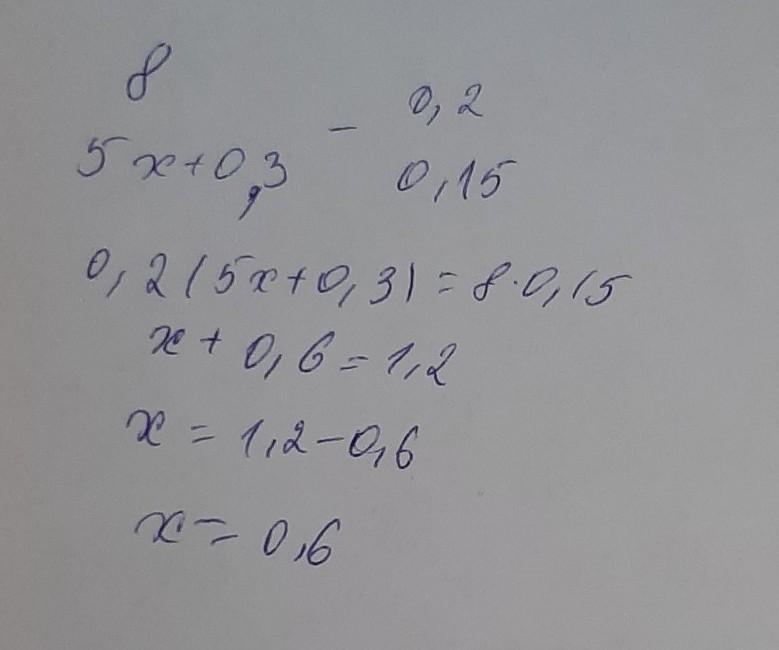 8 – 0,2
5x+0,3 0,15
0,2(5x+0,3)=8·0,15
x+0,6=1,2
x=1,2-0,6
x=0,6